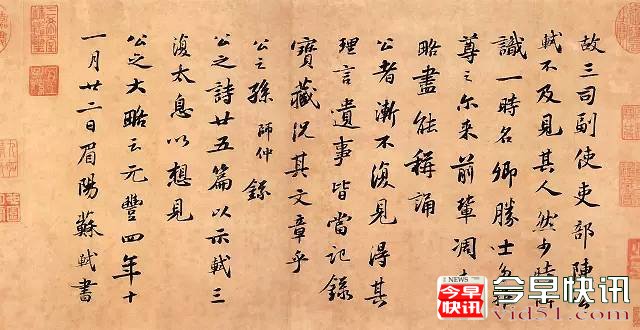 故三司副使吏部陳公
軾不及見其人然少時所
識一時名卿勝士多
尊之尔来前輩凋
略盡能稱誦
公者漸不復見得其
理言遺事皆當記錄
寶藏況其文章乎
公之孫師仲錄
公之詩廿五篇以示軾三
復太息以想見
公之大略云元豐四年十
一月廿二日眉陽蘇軾書
NEWS
今早快讯
今早快讯
vid51.com